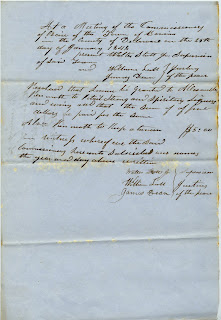 At a Meeting of the Commissioners
of Excise of the Town of
in the County of on the 24th
day of January 1846
present Walter Stott Jr Supervisor
of Said Town
and William Lull } Justices
James Bacon } of the peace
Resolved that License be granted to Alexander
to retail Strong and Spirituous Liquors
and wines and that the sum of five
dollars be paid for the same
to keep a tavern $5.00
In witness whereof we the said
Commissioners hereunto Subscribed our names
the year and day above written
Walter Stott Jr } Supervisor
William Lull } Justices
James Bacon } of the peace